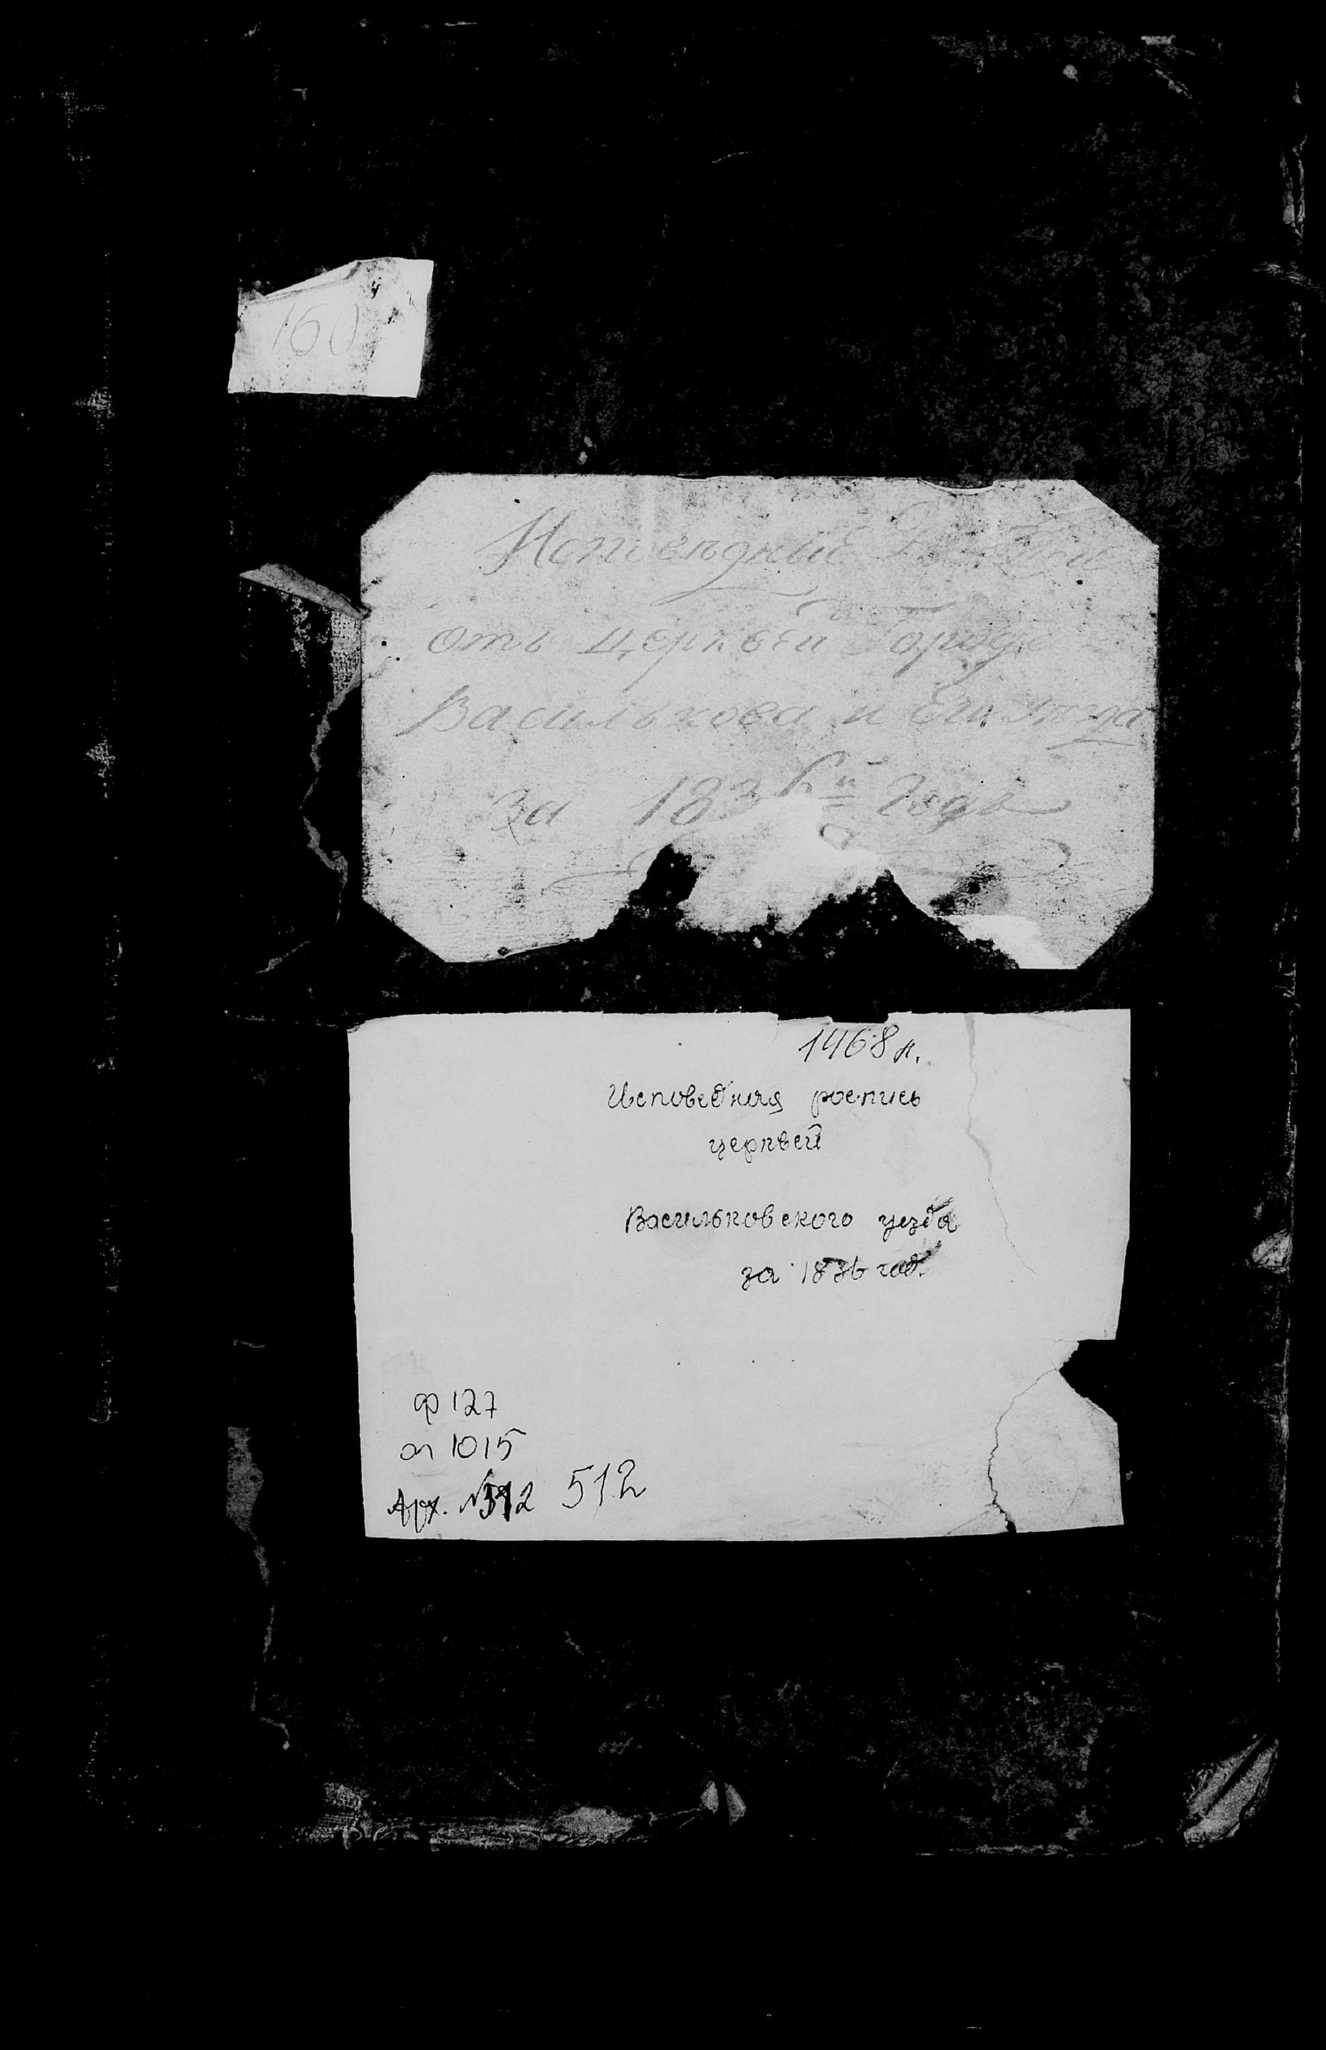 160
Исповѣдныи
отъ Церквей Города
Василькова и Его уѣзда
за 1836й Годъ
1468 л.
Исповедная роспись
церквей
Васильковского уезда
за 1836 год.
ф 127
оп 1015
Арх. № 512 512